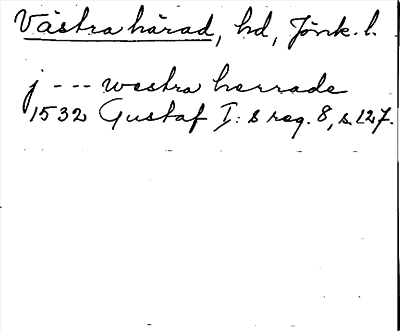 Västra härad, hd, Jönk. l.
j --- westra herrade
1532 Gustaf I:s reg. 8, s. 127.